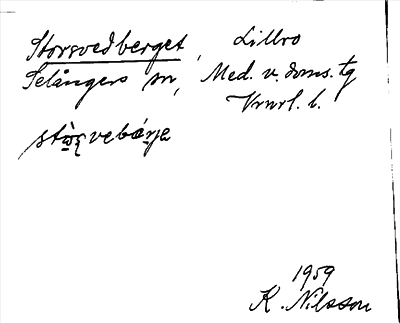 Storsvedberget, Lillro
Selångers sn, Med. v. doms. tg
Vrnrl. l.
1959
K. Nilsson